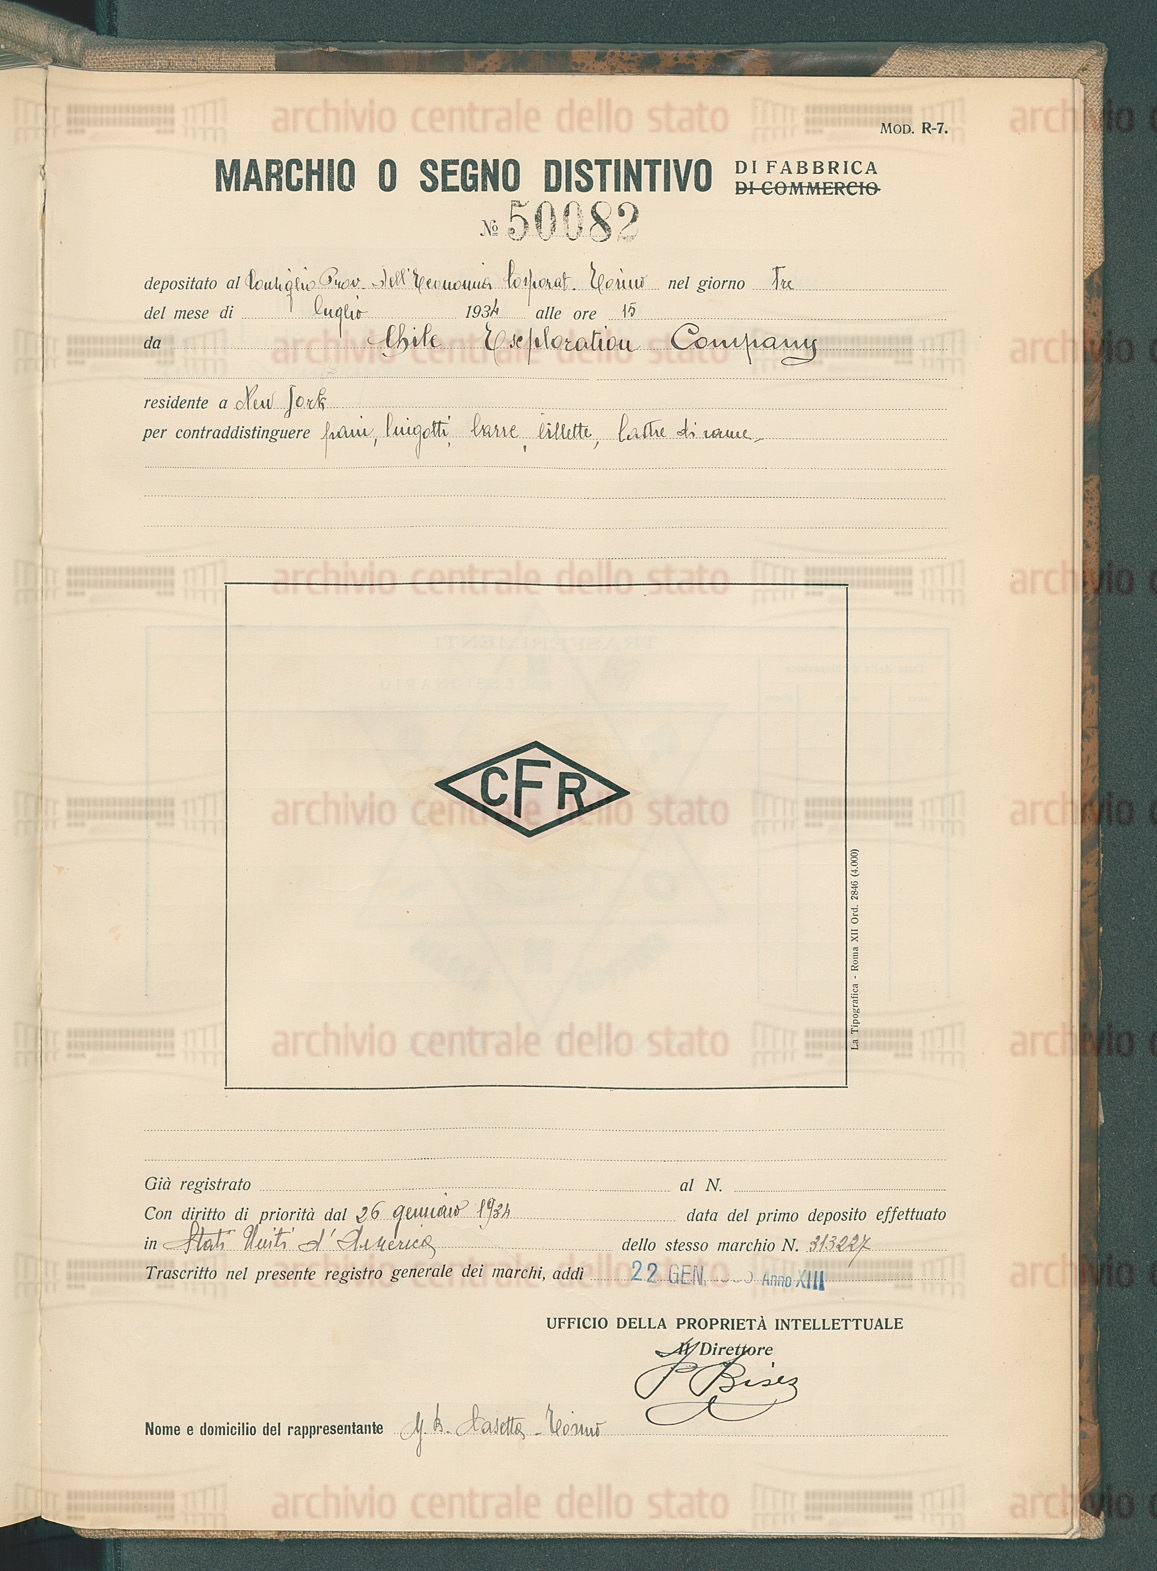 MOD. R-7.
MARCHIO O SEGNO DISTINTIVO DI FABBRICA
DI COMMERCIO
No 50082
depositato al Consiglio Prov. dell'Economia Corporat. Torino nel giorno Tre
del mese di luglio 1934 alle ore 15
da Chile Exploration Company
residente a New York
per contraddistinguere pani, lingotti, barre, billette, lastre di rame
CFR
La Tipografica - Roma XII Ord. 2846 (4.000)
Già registrato al N.
Con diritto di priorità dal 26 gennaio 1934 data del primo deposito effettuato
in Stati Uniti d'America dello stesso marchio N. 313227
Trascritto nel presente registro generale dei marchi, addì 22 GEN. Anno XIII
UFFICIO DELLA PROPRIETÀ INTELLETTUALE
Il Direttore
Nome e domicilio del rappresentante Casetta - Torino
archivio centrale dello stato
archivio centrale dello stato
archivio centrale dello stato
archivio centrale dello stato
archivio centrale dello stato
archivio centrale dello stato
archivio centrale dello stato